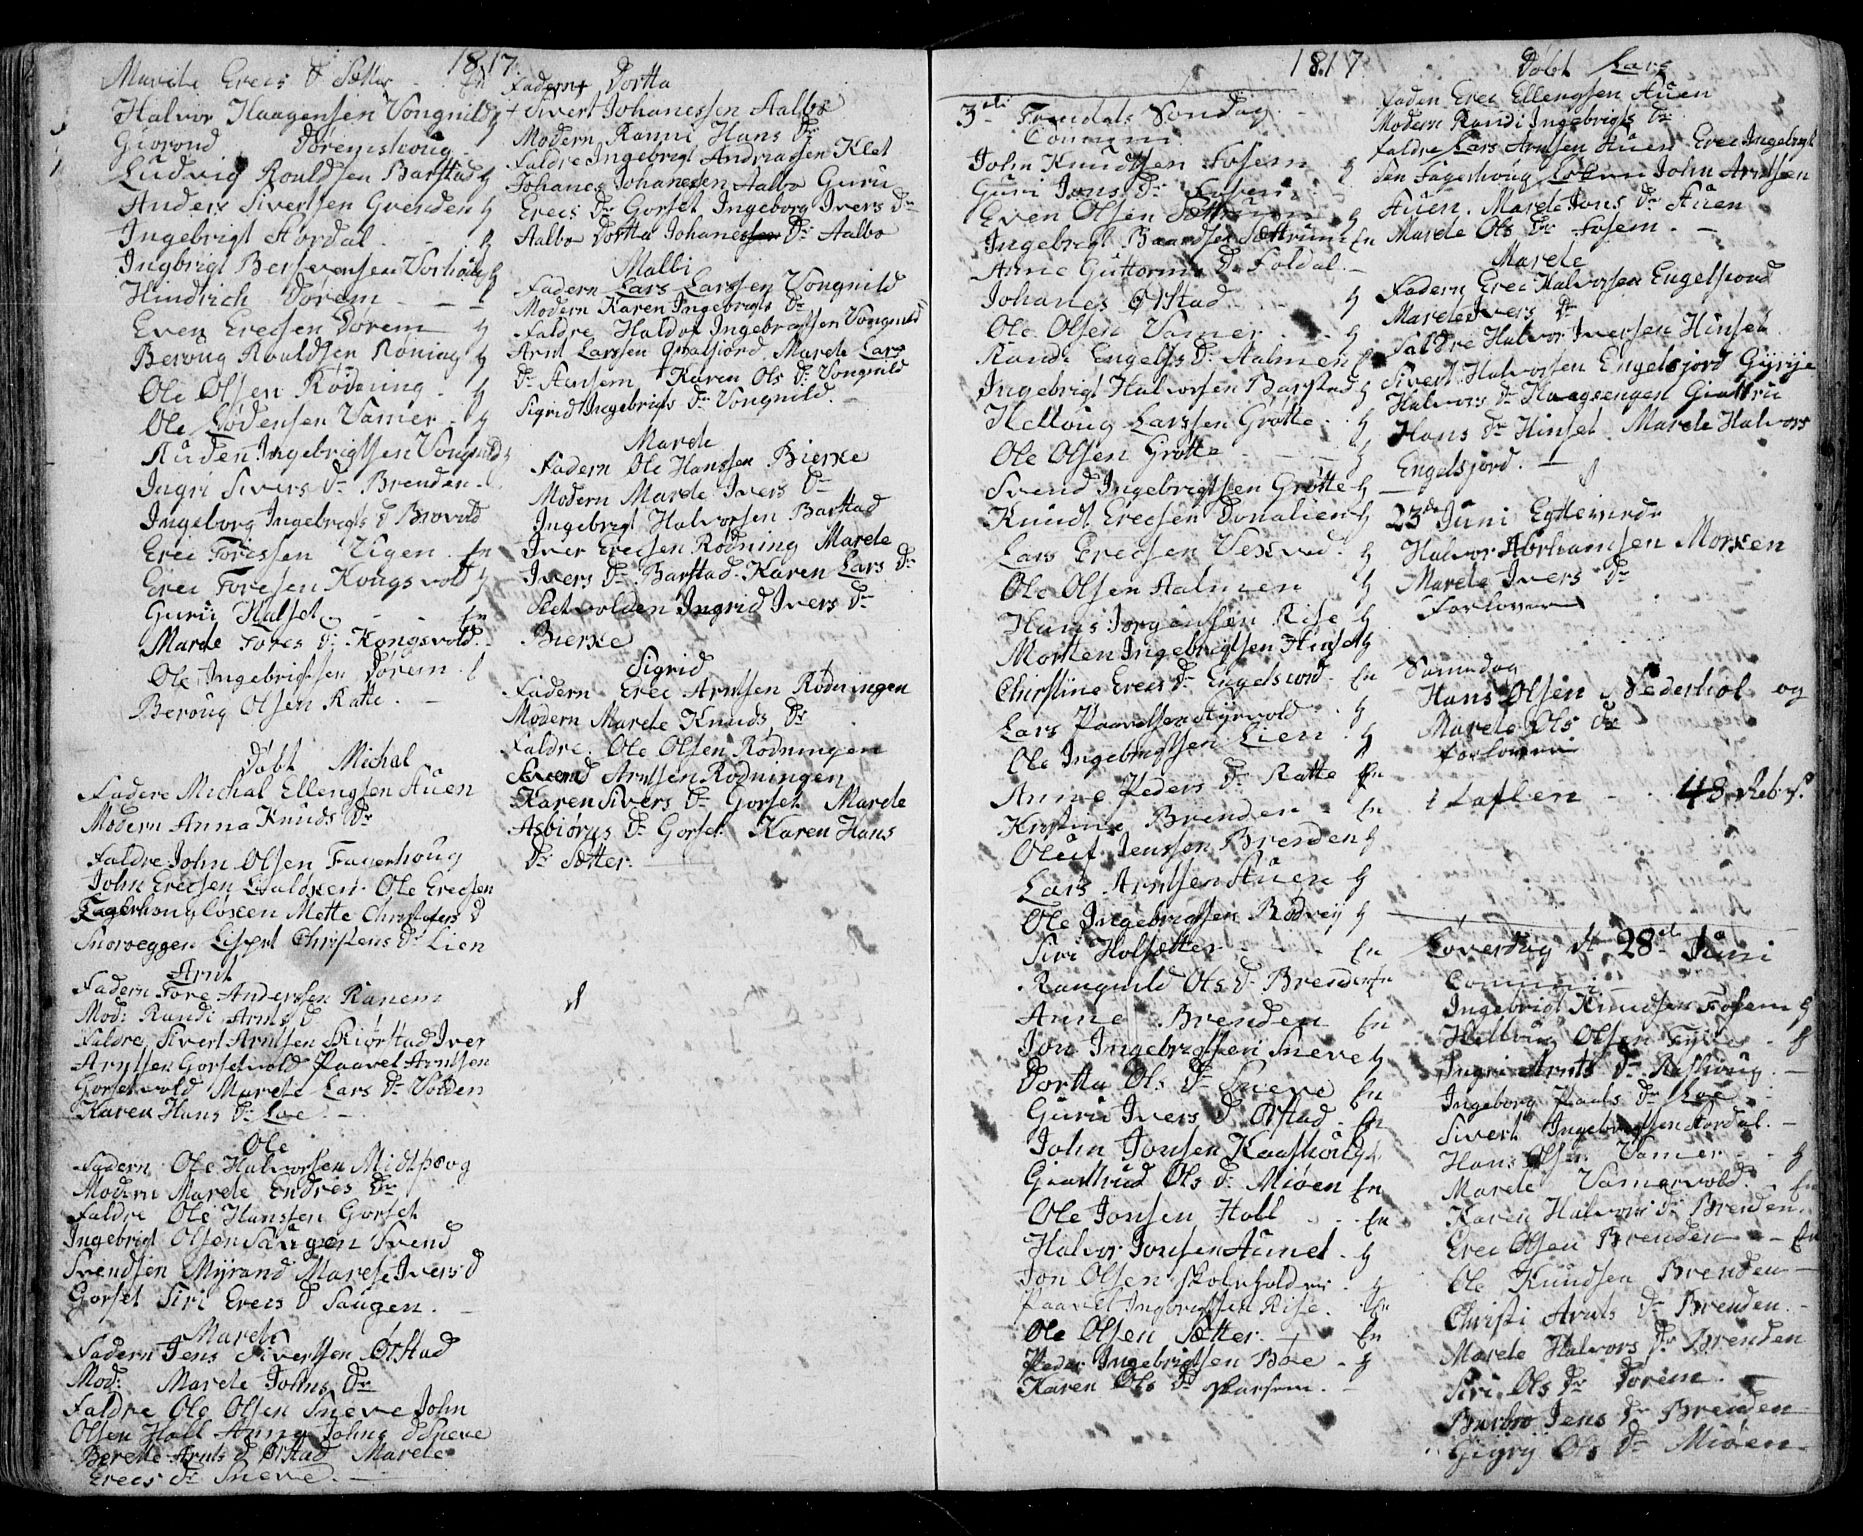 1817
Marite Erecs D Sætter - En
Halvor Haagensen Vongnild
Giorond Dørremshoug
Ludvig Rouldsen Barstad
Anders Sivertsen Grenden
Ingebrigt Aordal
Ingbrigt Vorhoug
Hindrich Dørem
Even Erecsen Dørem
Beroug Rouldsen Røning
Ole Olsen Rödening
Ole Lödensen Vamer
Auden Ingebrigtsen Vongnild
Ingri Sivers Dr Brenden
Ingeborg Ingebrigts D Brovold
Erec Toressen Vigen En
Erec Toresen Kongsvold
Guru Halset - - En
Marde Tores D: Kongsvold
Ole Ingebrigtsen Dørem
Beroug Olsen Ratte
Døbt Michal
Fadere Michal Ellengsen Auen
Modern Anna Knuds Dr
Faldre John Olsen Fagerhoug
John Erecsen Ole Erecsen
Fagerhoug Mette Christofers D
Snoroeggen Christens D Lien
Arnt
Fadern Tore Andersen Ranem
Mod: Randi Arnts D
Faldre Sivert Arntsen Kiørstad Iver
Arntsen Gorsetvold Paavel Arntsen
Gorsetvold Marete Lars Dr Volden
Karen Hans D: Loe
Ole
Fadern Ole Halvorsen Midtskog
Modern Marete Endres Dr
Faldre Ole Hansen Gorset
Ingebrigt Olsen Saugen Svend
Svendsen Myrand Marete Ivers D
Gorset Siri Erecs D Saugen.
Marete
Fadern Jens Sivertsen Ørstad
Mod: Marete Johns Dr
Faldre Ole Olsen Sneve John
Olsen Holl Anne Johns D Sneve
Berette Arnts D Ørstad Marete
Erecs Dr Sneve.
Fadern Dortta
Sivert Johanessen Aalbo
Modern Ranni Hans Dr
Faldre Ingebrigt Andriassen Klet
Johanes Johanesen Aalbo Guru
Erecs Dr Gorset Ingeborg Ivers Dr
Aalbo Dortta Johanessen Dr Aalbo
Malbi
Fadern Lars Larssen Vongnild
Modern Karen Ingebrigts Dr
Faldre Haldor Ingebrigtsen Vongnild
Arnt Larssen Marete Lars
Dr Stensem Karen Ols Dr Vongnild
Sigrid Ingebrigts Dr Vongnild.
Marde
Fadern Ole Hanssen Bierke
Modern Marde Ivers Dr
Ingebrigt Halvorsen Barstad
Iver Erecsen Rödning Marele
Ivers Dr Barstad Karen Lars Dr
Sletvolden Ingrid Ivers Dr
Bierke
Sigrid
Fadern Erec Arntsen Rödningen
Modern Marele Knuds Dr
Faldre. Ole Olsen Rödningen
Svend Arntsen Rodningen
Karen Sivers Dr Gorset Marele
Asbiörns Dr Gorset Karen Hans
Dr Sætter.
1817
3die Søndag
Commun
John Knudtsen Fosem
Guri Jons Dr
Even Olsen Sættrum
Ingebrigt Baardsen Sættrum En
Anne Guttorms D Foldal
Johanes Ørstad
Ole Olsen Vamer
Randi Engebgs D: Aalmen
Ingebrigt Halvorsen Barstad
Kelloug Larssen Grotte
Ole Olsen Grotte
Svend Ingebrigtsen Grøtte
Knudt Erecsen Donalien
Lars Erecsen
Ole Olsen Aalmen
Hans Jorgensen Rise
Morten Ingebrigtsen Hinset
Christine Erecs Dr Engelsiord En
Lars Paavelsen Ayrvold
Ole Ingebrigtsen Lien
Anne Peders Dr Ratte En
Kristine Brenden - En
Oluf Jenssen Brenden
Lars Arntsen Auen
Ole Ingebrigtsen Rödvey
Siri Holsætter - - En
Rangnild Ols D. Brenden En
Anne Brenden En
Jon Ingebrigtsen Sneve
Dortta Ols Dr Sneve En
Guru Ivers D Ørstad - En
John Jonsen Kaashoug
Giærtrud Ols D. Miøen En
Ole Jonsen Holl - En
Halvor Jonsen Aunet
Jon Olsen Skoleholder
Paavel Ingebrigtsen Rise. En
Ole Olsen Sætter - En
Peder Ingebrigtsen Böe
Karen Ols Dr Skarsem.
Døbt Lars
Faden Erec Ellengsen Auen
Modern Randi Ingebrigts Dr
Faldre Lars Arntsen Auen Erec Ingebrigt
sen Fagerhoug John Arntsen
Auen. Marele Jons Dr Auen
Marele Ols Dr Fosem.
Marele
Fadern Erec Halvorsen Engelsiord
Marele Ivers Dr
Faldre Halvor Iversen Hinset
Sivert Halvorsen Engelsjord Gyrije
Halvors Dr Haagsengen Giættru
Hans Dr Hinset Marele Halvors
Engelsjord.
23de Juni Egteviede
Halvor Abrhamsen Morken
Marele Ivers Dr
Forlovere
Samedag
Hans Olsen Nederhol og
Marele Ols Dr
Forlovere
i taflen - 48
Løverdag dt 28de Juni
Communi
Ingebrigt Knudsen Fosem
Helloug Olsen
Ingri Arnts Dr
Ingeborg Paals Dr Loe
Sivert Ingebrigtsen Aordal.
Hans Olsen Vamer
Marele Vamervold. En
Karen Halvors Dr Brenden
Erec Olsen Brenden - En
Ole Knudsen Brenden
Christi Arnts Dr Brenden
Marele Halvors Dr Brenden
Siri Ols Dr Dorem
Barbro Jens Dr Brenden
Gigrij Ols Dr Miøen